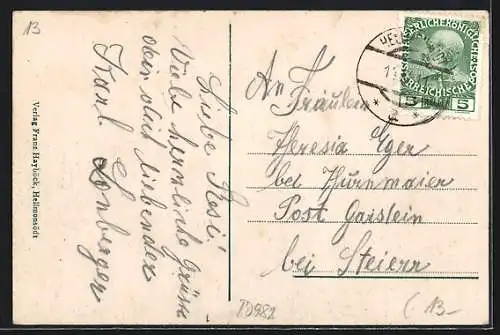 13
Liebe Resi!
Viele herzliche Grüsse
dein dich liebender
Franz Lonberger
Verlag Franz Hayböck, Hellmonsödt
KAISERLICHE KÖNIGLICHE
ÖSTERREICHISCHE POST
5 HELLER 5
An Fräulein
Theresia Eger
bei Thurnmaier
Post Garstein
bei Steier
TD981
(13-